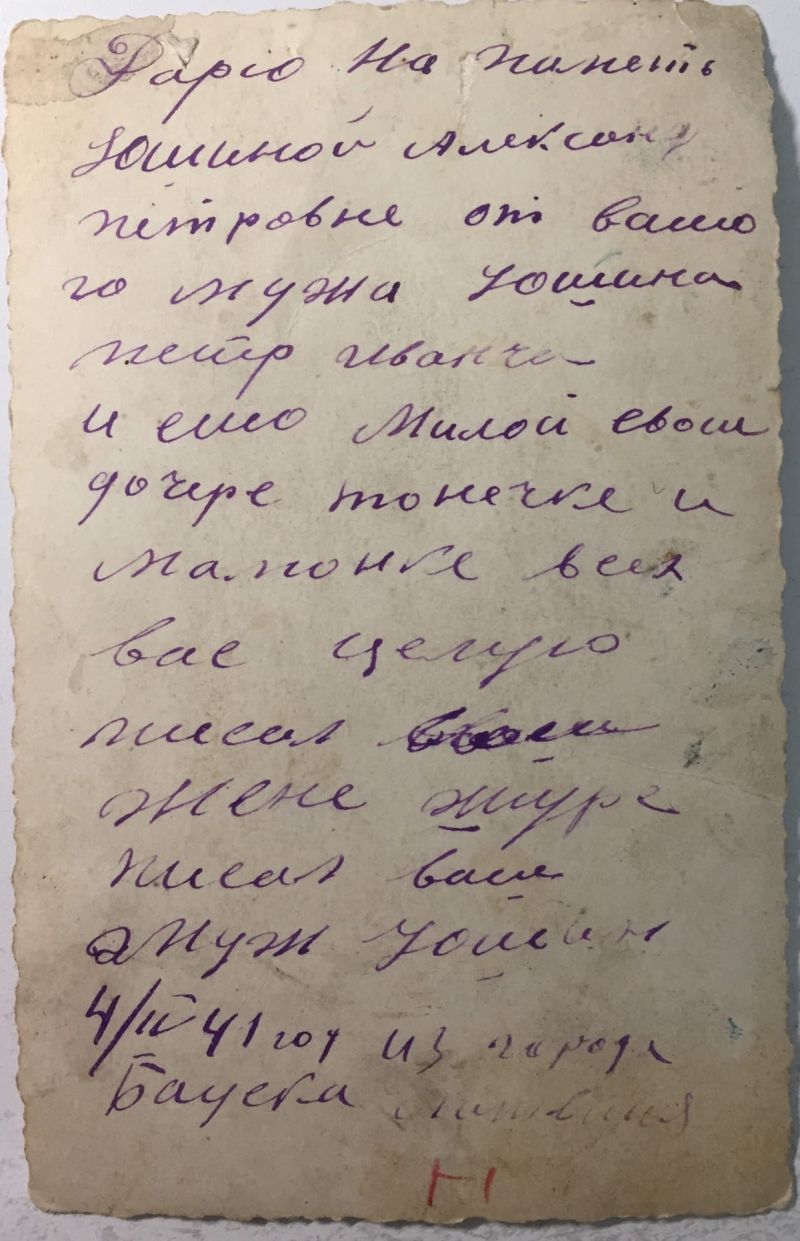 Дарю на паметь
Юшиной Александ
петровне от вашо
го мужа Юшина
петр Иванча
и ешо Милой своеи
дочере тонечке и
мамонке всех
вас целую
писал
жене шуре
писал ваш
муж Юшин
4/IV 41 год из города
Бауска Латвиия